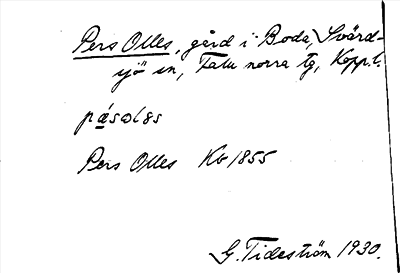 Pers Olles, gård i Boda, Svärd-
sjö sn, Falu norra tg, Kopp.l.
pásɷlss
Pers Olles Kb 1855
G. Tideström 1930.